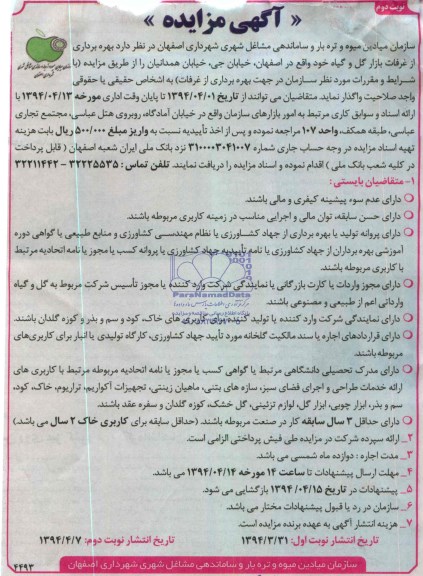 نوبت دوم
« آگهی مزایده »
سازمان میادین میوه و تره بار و ساماندهی مشاغل شهری شهرداری اصفهان در نظر دارد بهره برداری
از غرفات بازار گل و گیاه خود واقع در اصفهان، خیابان جی، خیابان همدانیان را از طریق مزایده (با
شرایط و مقررات مورد نظر سازمان در جهت بهره برداری از غرفات) به اشخاص حقیقی یا حقوقی
واجد صلاحیت واگذار نماید. متقاضیان می توانند از تاریخ ۱۳۹۴/۰۴/۰۱ تا پایان وقت اداری مورخه ۱۳۹۴/۰۴/۱۳ با
ارائه اسناد و سوابق کاری مرتبط به امور بازارهای سازمان واقع در خیابان آمادگاه، روبروی هتل عباسی، مجتمع تجاری
عباسی، طبقه همکف، واحد ۱۰۷ مراجعه نموده و پس از اخذ تأییدیه نسبت به واریز مبلغ ۵۰۰/۰۰۰ ریال بابت هزینه
تهیه اسناد مزایده در وجه حساب جاری شماره ۳۱۰۰۰۰۳۰۴۱۰۰۷ نزد بانک ملی ایران شعبه اصفهان ( قابل پرداخت
در کلیه شعب بانک ملی ) اقدام نموده و اسناد مزایده را دریافت نمایند. تلفن تماس : ۳۲۲۲۵۵۳۵ - ۳۲۲۱۱۴۴۲
۱- متقاضیان بایستی :
دارای عدم سوء پیشینه کیفری و مالی باشند.
دارای حسن سابقه، توان مالی و اجرایی مناسب در زمینه کاربری مربوطه باشند.
دارای پروانه تولید یا بهره برداری از جهاد کشاورزی یا نظام مهندسی کشاورزی و منابع طبیعی یا گواهی دوره
آموزشی بهره برداران از جهاد کشاورزی یا نامه تأییدیه جهاد کشاورزی یا پروانه کسب یا مجوز یا نامه اتحادیه مرتبط
با کاربری مربوطه باشند.
دارای مجوز واردات یا کارت بازرگانی یا نمایندگی شرکت وارد کننده یا مجوز تأسیس شرکت مربوط به گل و گیاه
وارداتی اعم از طبیعی و مصنوعی باشند.
دارای نمایندگی شرکت وارد کننده یا تولید کننده برای کاربری های خاک، کود و سم و بذر و کوزه گلدان باشند.
دارای قراردادهای اجاره یا سند مالکیت گلخانه مورد تأیید جهاد کشاورزی، کارگاه تولیدی یا انبار برای کاربری‌های
مربوطه باشند.
دارای مدرک تحصیلی دانشگاهی مرتبط یا گواهی کسب یا مجوز یا نامه اتحادیه مربوطه مرتبط با کاربری های
ارائه خدمات طراحی و اجرای فضای سبز، سازه های بتنی، ماهیان زینتی، تجهیزات آکواریم، تراریوم، خاک، کود،
سم و بذر، ابزار چوبی، ابزار گل، لوازم تزئینی، گل خشک، کوزه گلدان و سفره عقد باشند.
دارای حداقل ۳ سال سابقه کار در صنعت مربوطه باشند. (حداقل سابقه برای کاربری خاک ۲ سال می باشد)
۲_ ارائه سپرده شرکت در مزایده طی فیش پرداختی الزامی است.
۳_ مدت اجاره : دوازده ماه شمسی می باشد.
۴_ مهلت ارسال پیشنهادات تا ساعت ۱۴ مورخه ۱۳۹۴/۰۴/۱۴ می باشد.
۵_ پیشنهادات در تاریخ ۱۳۹۴/۰۴/۱۵ بازگشایی می شود.
۶_ سازمان در رد یا قبول پیشنهادات مختار می باشد.
۷_ هزینه انتشار آگهی به عهده برنده مزایده است.
تاریخ انتشار نوبت اول: ۱۳۹۴/۳/۳۱ تاریخ انتشار نوبت دوم: ۱۳۹۴/۴/۷
سازمان میادین میوه و تره بار و ساماندهی مشاغل شهری شهرداری اصفهان
۴۴۹۳
ParsNamadData